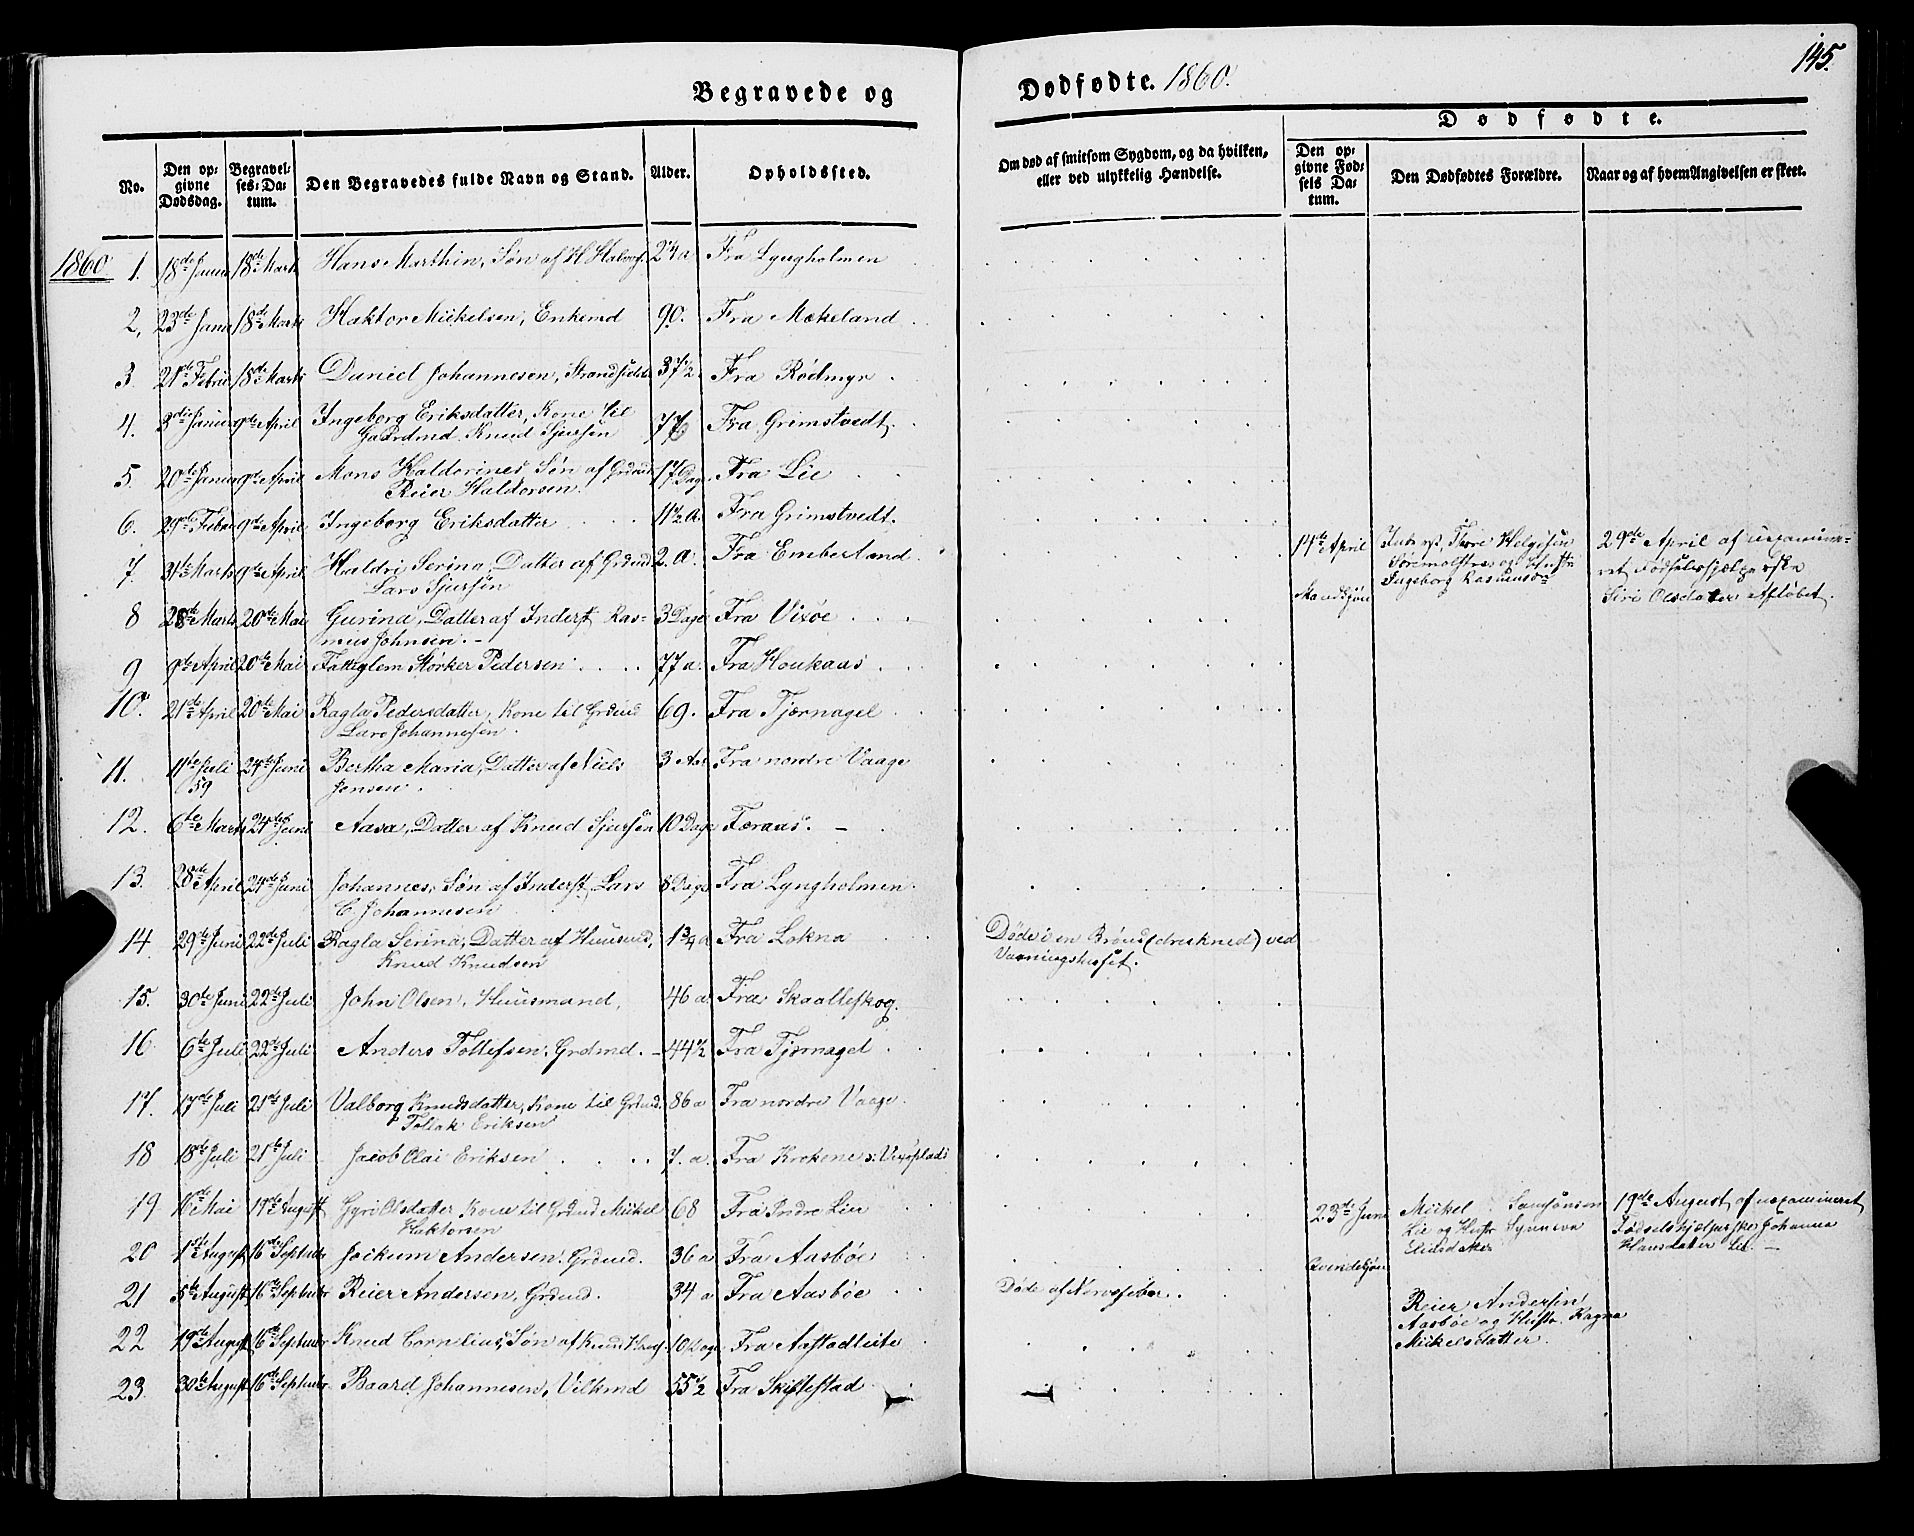 145.
Begravede og Dødfødte. 1860.
Dødfødte.
No.
Den opgivne Dødsdag.
Begravelses-Datum.
Den Begravedes fulde Navn og Stand.
Alder.
Opholdssted.
Om død af smitsom Sygdom, og da hvilken, eller ved ulykkelig Hændelse.
Den opgivne Fødsels Datum.
Den Dødfødtes Forældre.
Naar og af hvem Angivelsen er skeet.
1860
1. 18de Janu 18de Marts Hans Marthin, Søn af H. 2¼ a Fra Lyngholmen
2, 23de Janu 18de Marts Haktor Mickelsen, Enkemd 90. Fra Mækeland
3 21de Febru 18de Marts Daniel Johannesen, Strandsidde 37½ Fra Rødmyr
4. 3die Januar 9de April Ingeborg Eriksdatter, Kone til 77 Fra Grimstvedt
Gaardmd. Knud Sjursen
5. 20de Januar 9de April Mons Haldorines Søn af Grdmd 17 Dage Fra Lie
Reier Haldorsen
6. 29de Febru 9de April Ingeborg Eriksdatter 11½ a. Fra Grimstvedt.
7 31te Marts 9de April Haldri Serina, Datter af Grdmd 2. a. Fra Emberland
Lars Sjursen
14de April
Mandkjøn
Inderst Thore Helgesen
og Hustr
Ingeborg Rasmusdr
29de April af uexamine-
ret Fødselshjælperske
Siri Olsdatter Afløbet.
8 28de Marts 20de Mai Gurina, Datter af Inderst Ras- 3 Dage Fra Vixøe
mus Johnsen. -
9 9de April 20de Mai Fattiglem Størker Pedersen 77 a. Fra Houkaas
10. 21de April 20de Mai Ragla Pedersdatter, Kone til Grdmd 69. Fra Tjernagel
Lars Johannesen.
11. 11te Juli 59 24de Juni Bertha Maria, Datter af Niels 3 Aar Fra nordre Vaage
Jensen.
12. 6te Marts 24de Juni Aasa, Datter af Knud Sjursen 10 Dage Færaas. -
13. 28de April 24de Juni Johannes, Søn af Inderst Lars 8 Dage Fra Lyngholmen
C. Johannesen
14. 29de Juni 22de Juli Ragla Serina, Datter af Huusmd, 1¾ a Fra Lokna
Knud Knudsen
Døde i en Brønd (druknede) ved
Vaaningshuset.
15. 30te Juni 22de Juli John Olsen, Huusmand, 46 a Fra Skaalleskog.
16 6te Juli 22de Juli Anders Tollefsen, Grdmd. - 44½ Fra Tjernagel
17. 17de Juli 21de Juli Valborg Knudsdatter, Kone til Grdmd. 86 a Fra nordre Vaage.
Tollak Eriksen
18 18de Juli 21de Juli Jacob Olai Eriksen 7. a. Fra Krokene
19 Mai 19de August Gyri Olsdatter Kone til Grdmd Mickel 68 Fra Indre Lier
Haktorsen
23de Juni
Qvindekjøn
Mickel Samsonsen
Lie og Hustr Synneva
Eliasdatter
19de August af uexamineret
Fødselshjælperske Johanna
Hansdatter Lie. -
20 1ste August 16de Septbr Jockum Andersen. Grdmd. 36 a Fra Aasbøe
21 5te August 16de Septbr Reier Andersen, Grdmd. 34 a Fra Aasbøe
Døde af Nervefeber.
Reier Andersen
Aasbøe og Hustr. Ragna
Mickelsdatter.
22 19de August 16de Septbr Knud Cornelius, Søn af Knud 10 Dage Fra Aastadleite
23. 30te August 16de Septbr Baard Johannesen, Vilkmd 55½ Fra Skiftestad